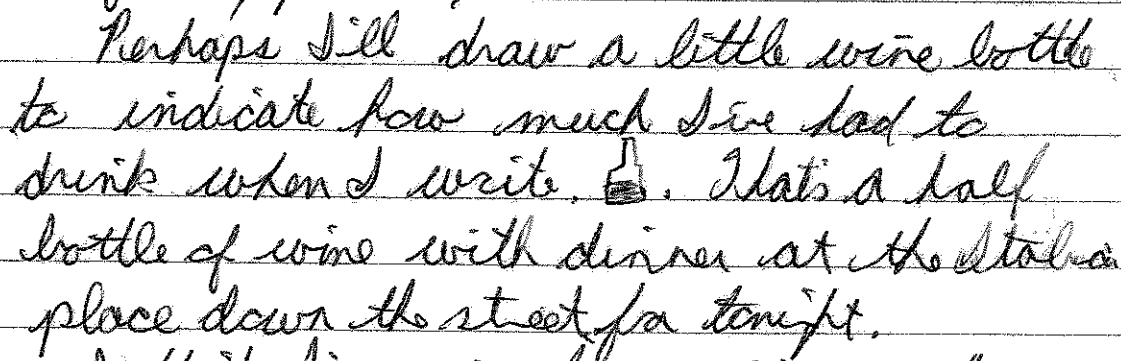 Perhaps I'll draw a little wine bottle
to indicate how much I've had to
drink when I write. . Thats a half
bottle of wine with dinner at the Italian
place down the street for tonight.